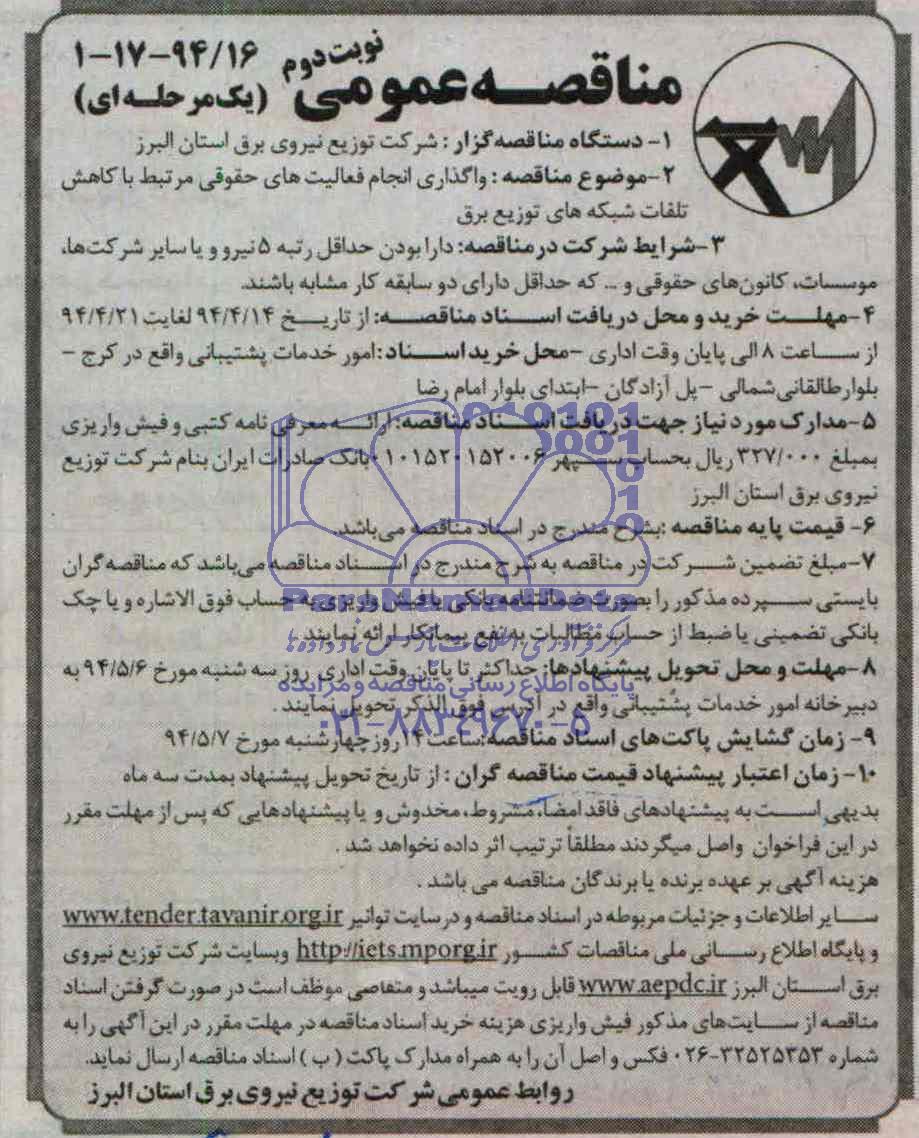 نوبت دوم
۱-۱۷-۹۴/۱۶
مناقصه عمومی (یک مرحله ای)
۱- دستگاه مناقصه گزار : شرکت توزیع نیروی برق استان البرز
۲-موضوع مناقصه : واگذاری انجام فعالیت های حقوقی مرتبط با کاهش
تلفات شبکه های توزیع برق
۳-شرایط شرکت در مناقصه: دارا بودن حداقل رتبه ۵ نیرو و یا سایر شرکت‌ها،
موسسات، کانون‌های حقوقی و ... که حداقل دارای دو سابقه کار مشابه باشند.
۴-مهلت خرید و محل دریافت اسناد مناقصه: از تاریخ ۹۴/۴/۱۴ لغایت ۹۴/۴/۲۱
از ساعت ۸ الی پایان وقت اداری -محل خرید اسناد :امور خدمات پشتیبانی واقع در کرج -
بلوار طالقانی شمالی -پل آزادگان -ابتدای بلوار امام رضا
۵-مدارک مورد نیاز جهت دریافت اسناد مناقصه: ارائه معرفی نامه کتبی و فیش واریزی
بمبلغ ۳۲۷/۰۰۰ ریال بحساب سپهر ۰۱۰۱۵۲۰۱۵۲۰۰۶ بانک صادرات ایران بنام شرکت توزیع
نیروی برق استان البرز
۶- قیمت پایه مناقصه :بشرح مندرج در اسناد مناقصه می‌باشد.
۷-مبلغ تضمین شرکت در مناقصه به شرح مندرج در اسناد مناقصه می‌باشد که مناقصه گران
بایستی سپرده مذکور را بصورت ضمانتنامه بانکی یا فیش واریزی به حساب فوق الاشاره و یا چک
بانکی تضمینی یا ضبط از حساب مطالبات به نفع پیمانکار ارائه نمایند .
۸-مهلت و محل تحویل پیشنهادها: حداکثر تا پایان وقت اداری روز سه شنبه مورخ ۹۴/۵/۶ به
دبیرخانه امور خدمات پشتیبانی واقع در آدرس فوق الذکر تحویل نمایند .
۹- زمان گشایش پاکت‌های اسناد مناقصه:ساعت ۱۴ روز چهارشنبه مورخ ۹۴/۵/۷
۱۰- زمان اعتبار پیشنهاد قیمت مناقصه گران : از تاریخ تحویل پیشنهاد بمدت سه ماه
بدیهی است به پیشنهادهای فاقد امضاء، مشروط، مخدوش و یا پیشنهادهایی که پس از مهلت مقرر
در این فراخوان واصل میگردند مطلقاً ترتیب اثر داده نخواهد شد .
هزینه آگهی بر عهده برنده یا برندگان مناقصه می باشد .
سایر اطلاعات و جزئیات مربوطه در اسناد مناقصه و در سایت توانیر www.tender.tavanir.org.ir
و پایگاه اطلاع رسانی ملی مناقصات کشور http://iets.mporg.ir وبسایت شرکت توزیع نیروی
برق استان البرز www.aepdc.ir قابل رویت میباشد و متقاصی موظف است در صورت گرفتن اسناد
مناقصه از سایت‌های مذکور فیش واریزی هزینه خرید اسناد مناقصه در مهلت مقرر در این آگهی را به
شماره ۳۲۵۲۵۳۵۳-۰۲۶ فکس و اصل آن را به همراه مدارک پاکت ( ب ) اسناد مناقصه ارسال نماید.
روابط عمومی شرکت توزیع نیروی برق استان البرز
ParsNamadData
مرکز فرآوری اطلاعات پارس نماد داده ها
پایگاه اطلاع رسانی مناقصه و مزایده
۰۲۱-۸۸۳۴۹۶۷۰-۵